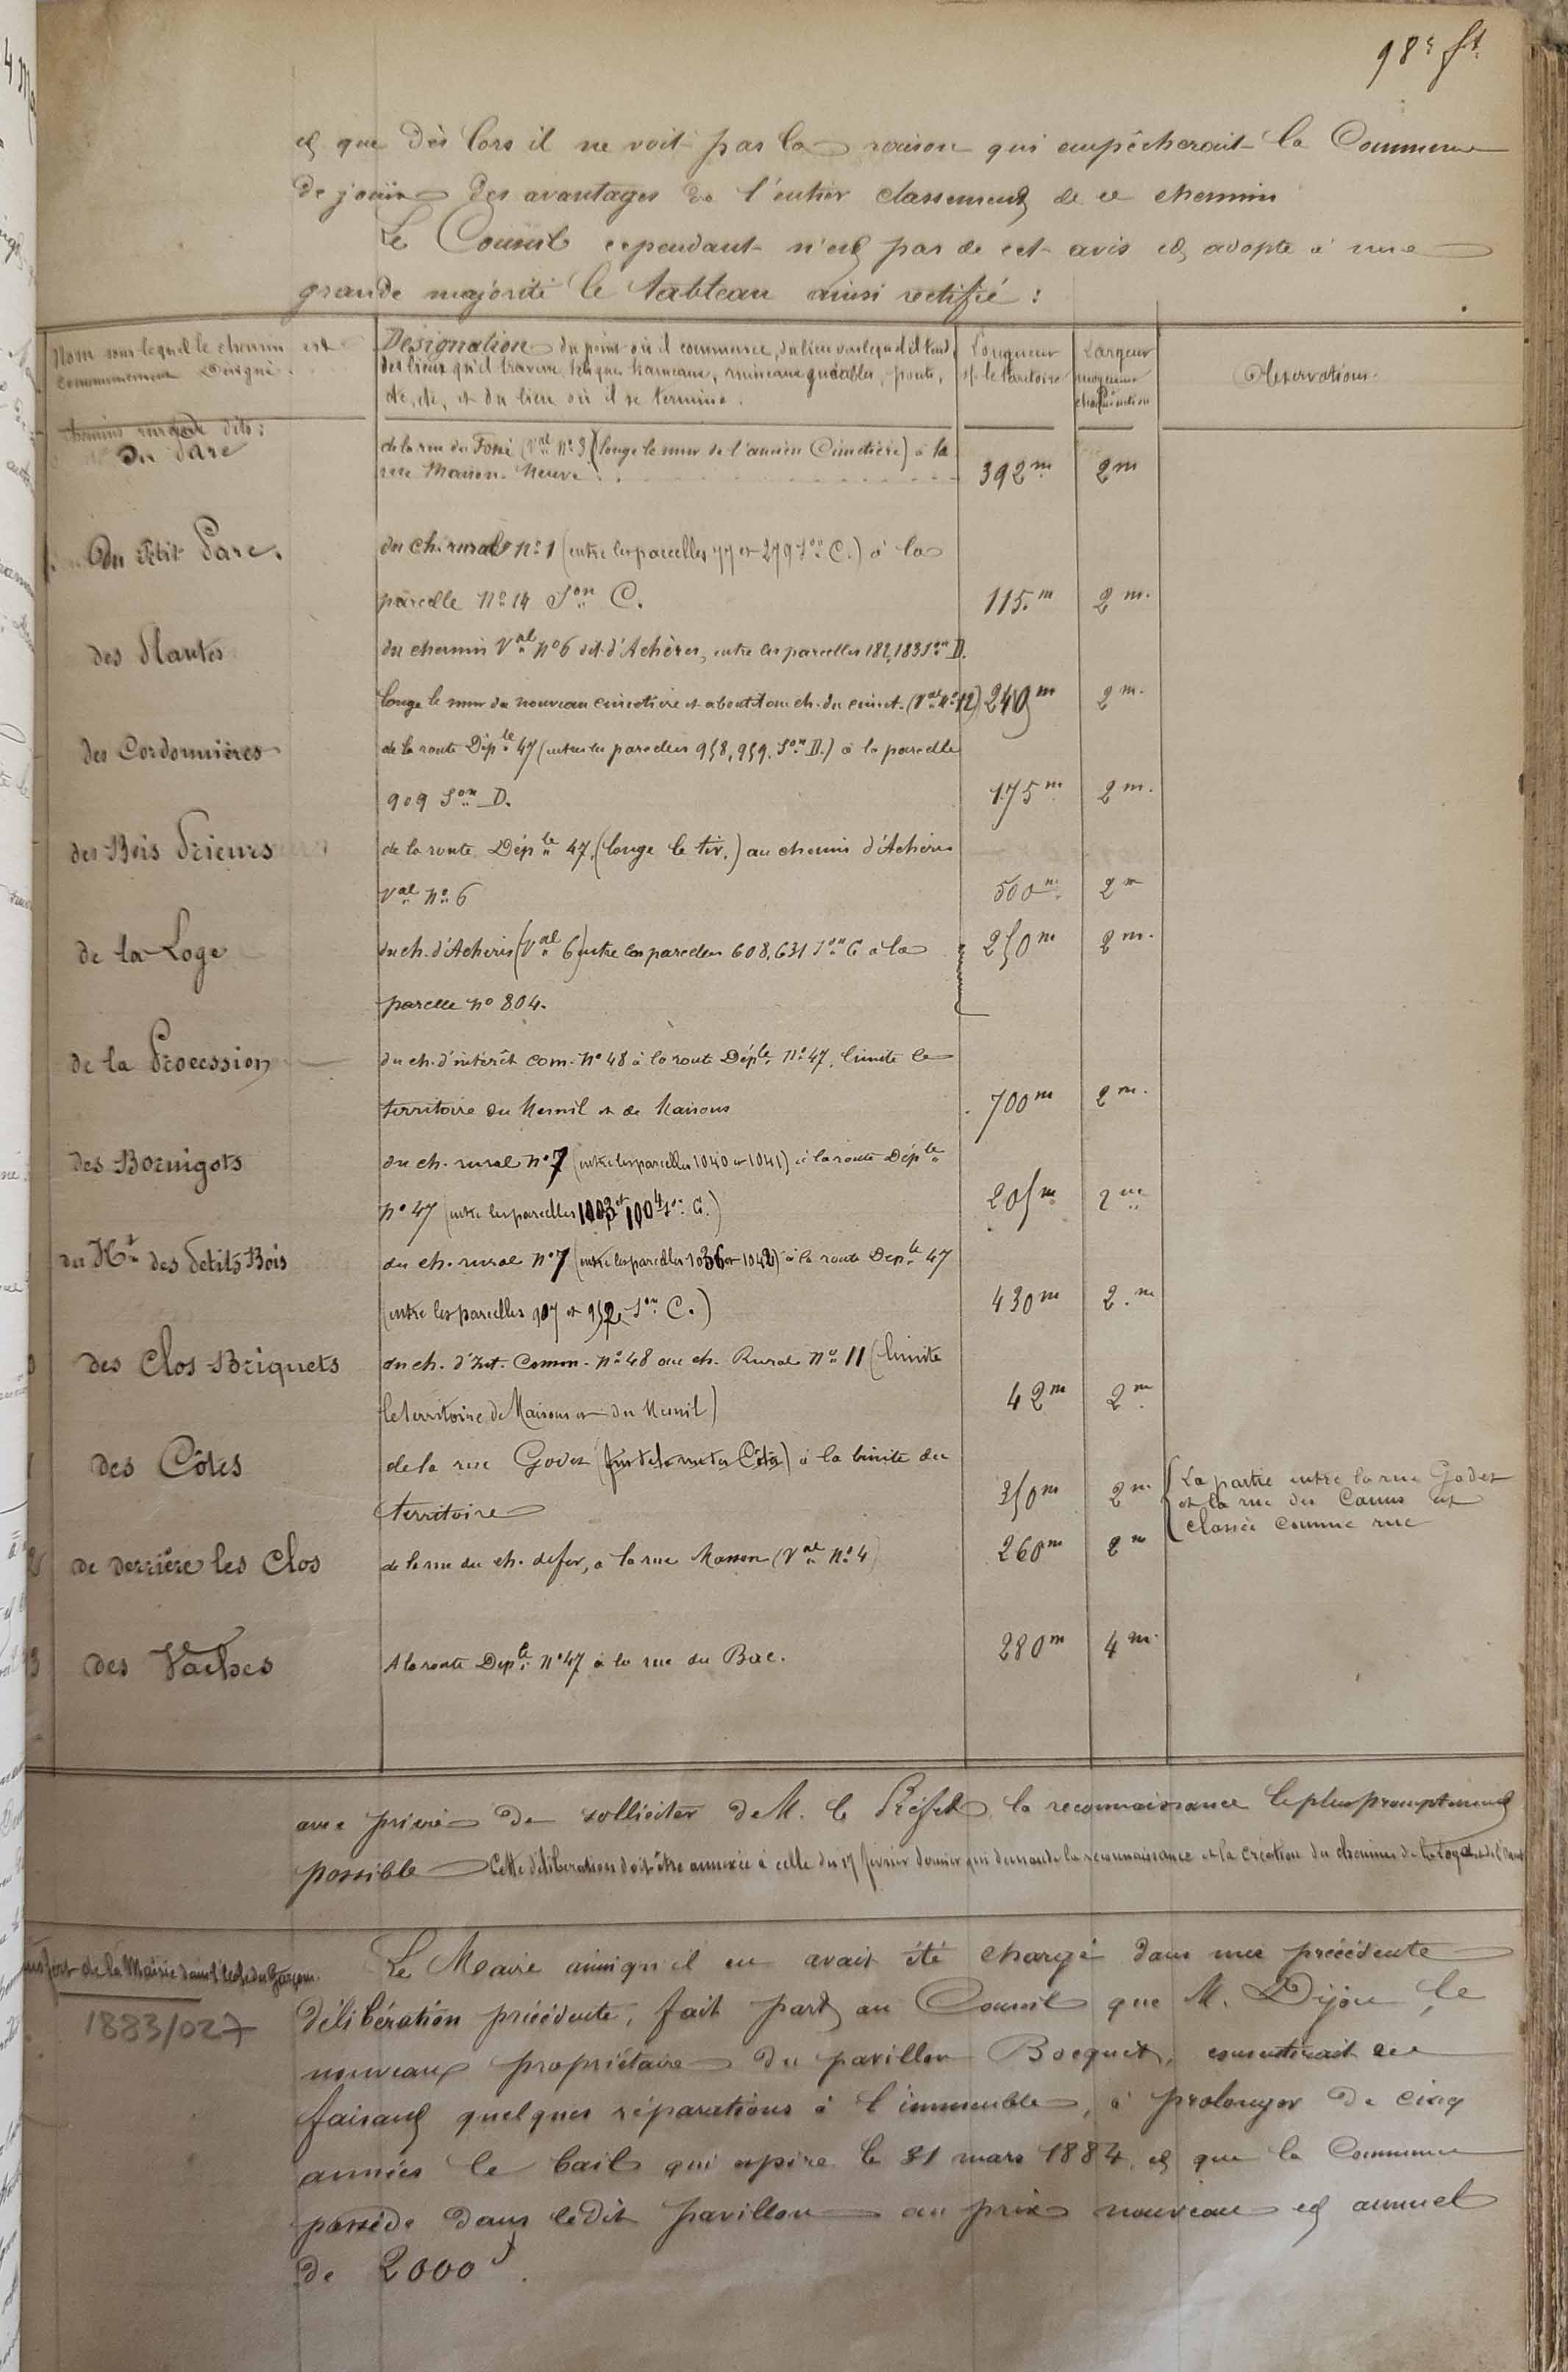 98e ft
et que dès lors il ne voit pas la raison qui empêcherait la Commune
de jouir des avantages de l'entier classement de ce chemin
Le Conseil cependant n'est pas de cet avis et adopte à une
grande majorité le tableau ainsi rectifié :
Nom sous lequel le chemin est
communément désigné.
Désignation du point où il commence, du lieu vers lequel il tend,
des lieux qu'il traverse, tels que hameaux, ruisseaux guéables, ponts,
etc, etc, et du lieu où il se termine.
Longueur
sr. le territoire
Largeur
moyenne
Observations.
Chemins ruraux dits :
Du Parc
de la rue du Fossé (Val No 3) (longe le mur de l'ancien Cimetière) à la
rue Maison-Neuve
392m
2m
Du Petit Parc.
du ch. rural No 1 (entre les parcelles 77 et 279 Son C.) à la
parcelle No 14 Son C.
115.m
2m.
des Plantes
du chemin Val No 6 dit d'Achères, entre les parcelles 182, 183 Son D.
longe le mur du nouveau cimetière et aboutit au ch. du cimet. (Val No 12)
240m
2m.
des Cordonnières
de la route Déple 47 (entre les parcelles 958, 959. Son D.) à la parcelle
909 Son D.
175m
2m.
des Bois Prieurs
de la route Déple 47, (longe le tir,) au chemin d'Achères
Val No 6
500m.
2m
de la Loge
du ch. d'Achères (Val 6) entre les parcelles 608, 631 Son C à la
parcelle No 804.
250m
2m.
de la Procession
du ch. d'intérêt com. No 48 à la route Déple No 47, limite le
territoire du Mesnil et de Maisons
700m
2m.
des Bornigots
du ch. rural No 7 (entre les parcelles 1040 et 1041) à la route Déple
No 47 (entre les parcelles 1003 et 1004 Son C.)
205m
2m
du Ht des Petits Bois
du ch. rural No 7 (entre les parcelles 1036 et 1042) à la route Déple 47
(entre les parcelles 907 et 952 Son C.)
430m
2.m
des Clos-Briquets
du ch. d'Int. Comm. No 48 au ch. Rural No 11 (limite
le territoire de Maisons et du Mesnil)
42m
2m
des Côtes
de la rue Godet à la limite du
territoire
350m
2m
La partie entre la rue Godet
et la rue des Canus est
classée comme rue
de derrière les Clos
de la rue du ch. de fer, à la rue Masson (Val No 4)
260m
2m
13
des Vaches
A la route Déple No 47 à la rue du Bac.
280m
4m.
avec prière de solliciter de M. le Préfet la reconnaissance le plus promptement
possible Cette délibération doit être annexée à celle du 17 février dernier qui demande la reconnaissance et la création du chemin de la Loge
de la Mairie dans l'école des Garçons.
1883/027
Le Maire ainsi qu'il en avait été chargé dans une précédente
délibération précédente, fait part au Conseil que M. Dijou le
nouveau propriétaire du pavillon Bocquet, consentirait en
faisant quelques réparations à l'immeuble, à prolonger de cinq
années le bail qui expire le 31 mars 1884, et que la Commune
possède dans ledit pavillon au prix nouveau et annuel
de 2000f.